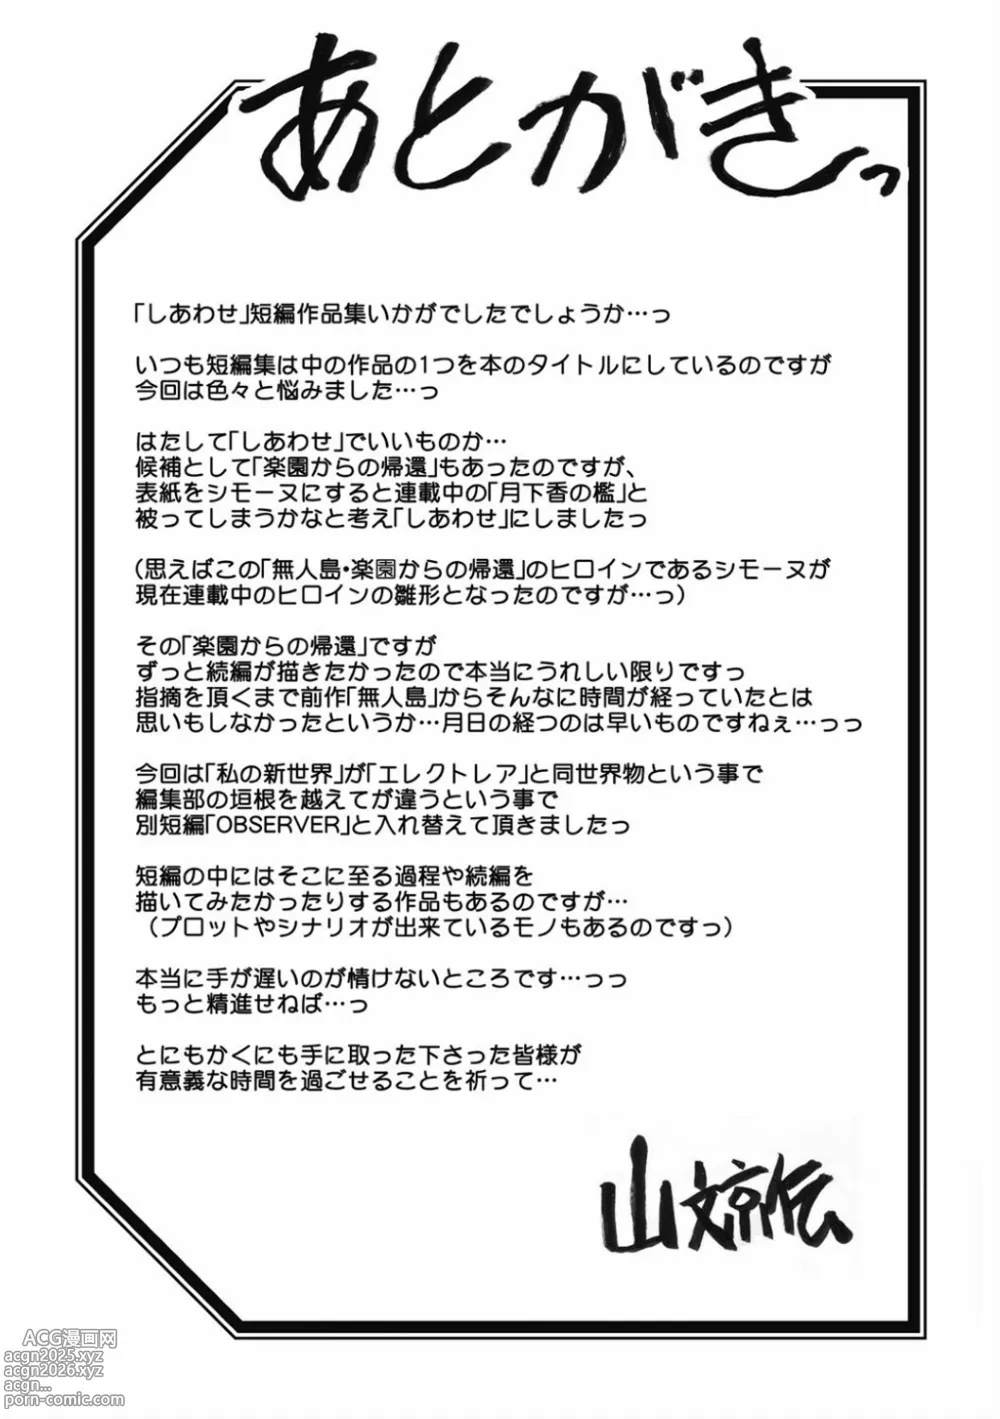 あとがきっ
「しあわせ」短編作品集いかがでしたでしょうか…っ
いつも短編集は中の作品の1つを本のタイトルにしているのですが
今回は色々と悩みました…っ
はたして「しあわせ」でいいものか…
候補として「楽園からの帰還」もあったのですが、
表紙をシモーヌにすると連載中の「月下香の檻」と
被ってしまうかなと考え「しあわせ」にしましたっ
(思えばこの「無人島・楽園からの帰還」のヒロインであるシモーヌが
現在連載中のヒロインの雛形となったのですが…っ)
その「楽園からの帰還」ですが
ずっと続編が描きたかったので本当にうれしい限りですっ
指摘を頂くまで前作「無人島」からそんなに時間が経っていたとは
思いもしなかったというか…月日の経つのは早いものですねぇ…っっ
今回は「私の新世界」が「エレクトレア」と同世界物という事で
編集部の垣根を越えてが違うという事で
別短編「OBSERVER」と入れ替えて頂きましたっ
短編の中にはそこに至る過程や続編を
描いてみたかったりする作品もあるのですが…
(プロットやシナリオが出来ているモノもあるのですっ)
本当に手が遅いのが情けないところです…っっ
もっと精進せねば…っ
とにもかくにも手に取った下さった皆様が
有意義な時間を過ごせることを祈って…
山文京伝
ACG漫画网
acgn2025.xyz
acgn2026.xyz
acgn...
porn-comic.com